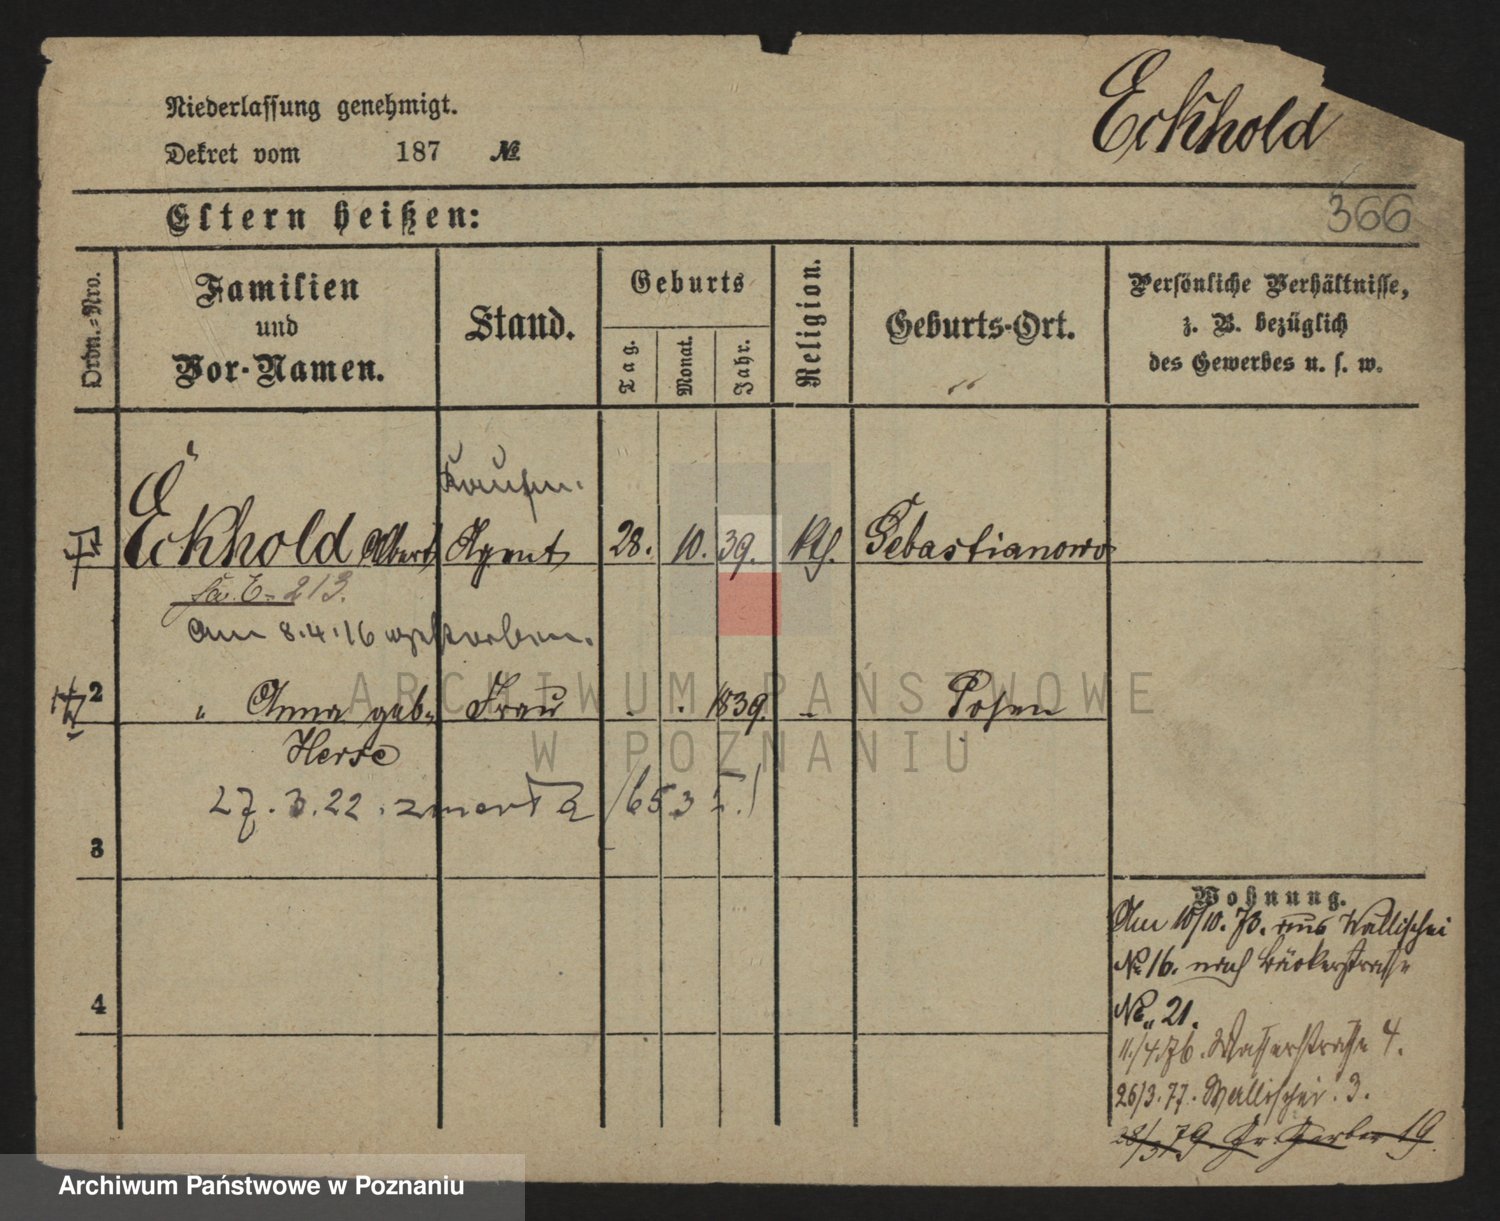 Eckhold
Niederlassung genehmigt.
Dekret vom 187 №
366
Eltern heißen:
Ordn.-Nro.
Familien
und
Vor-Namen.
Stand.
Geburts
Tag.
Monat.
Jahr.
Religion.
Geburts-Ort.
Persönliche Verhältnisse,
z. B. bezüglich
des Gewerbes u. s. w.
Kaufm.
Eckhold Albert Agent 28. 10. 39. kth. Sebastianowo
E= 213.
Am 8.4.16 gestorben.
2 " Anna geb. Frau 1839. Posen
Herse
27.3.22. zmarła /653
3
4
Wohnung.
Am 10/10. 73. aus Wallischei
No 16. nach Bäckerstrasse
No. 21.
11./4.76. Wasserstraße 4.
26/3.77. Wallischei 3.
28/3 79 Gr. Gerber 19
ARCHIWUM PAŃSTWOWE
W POZNANIU
Archiwum Państwowe w Poznaniu